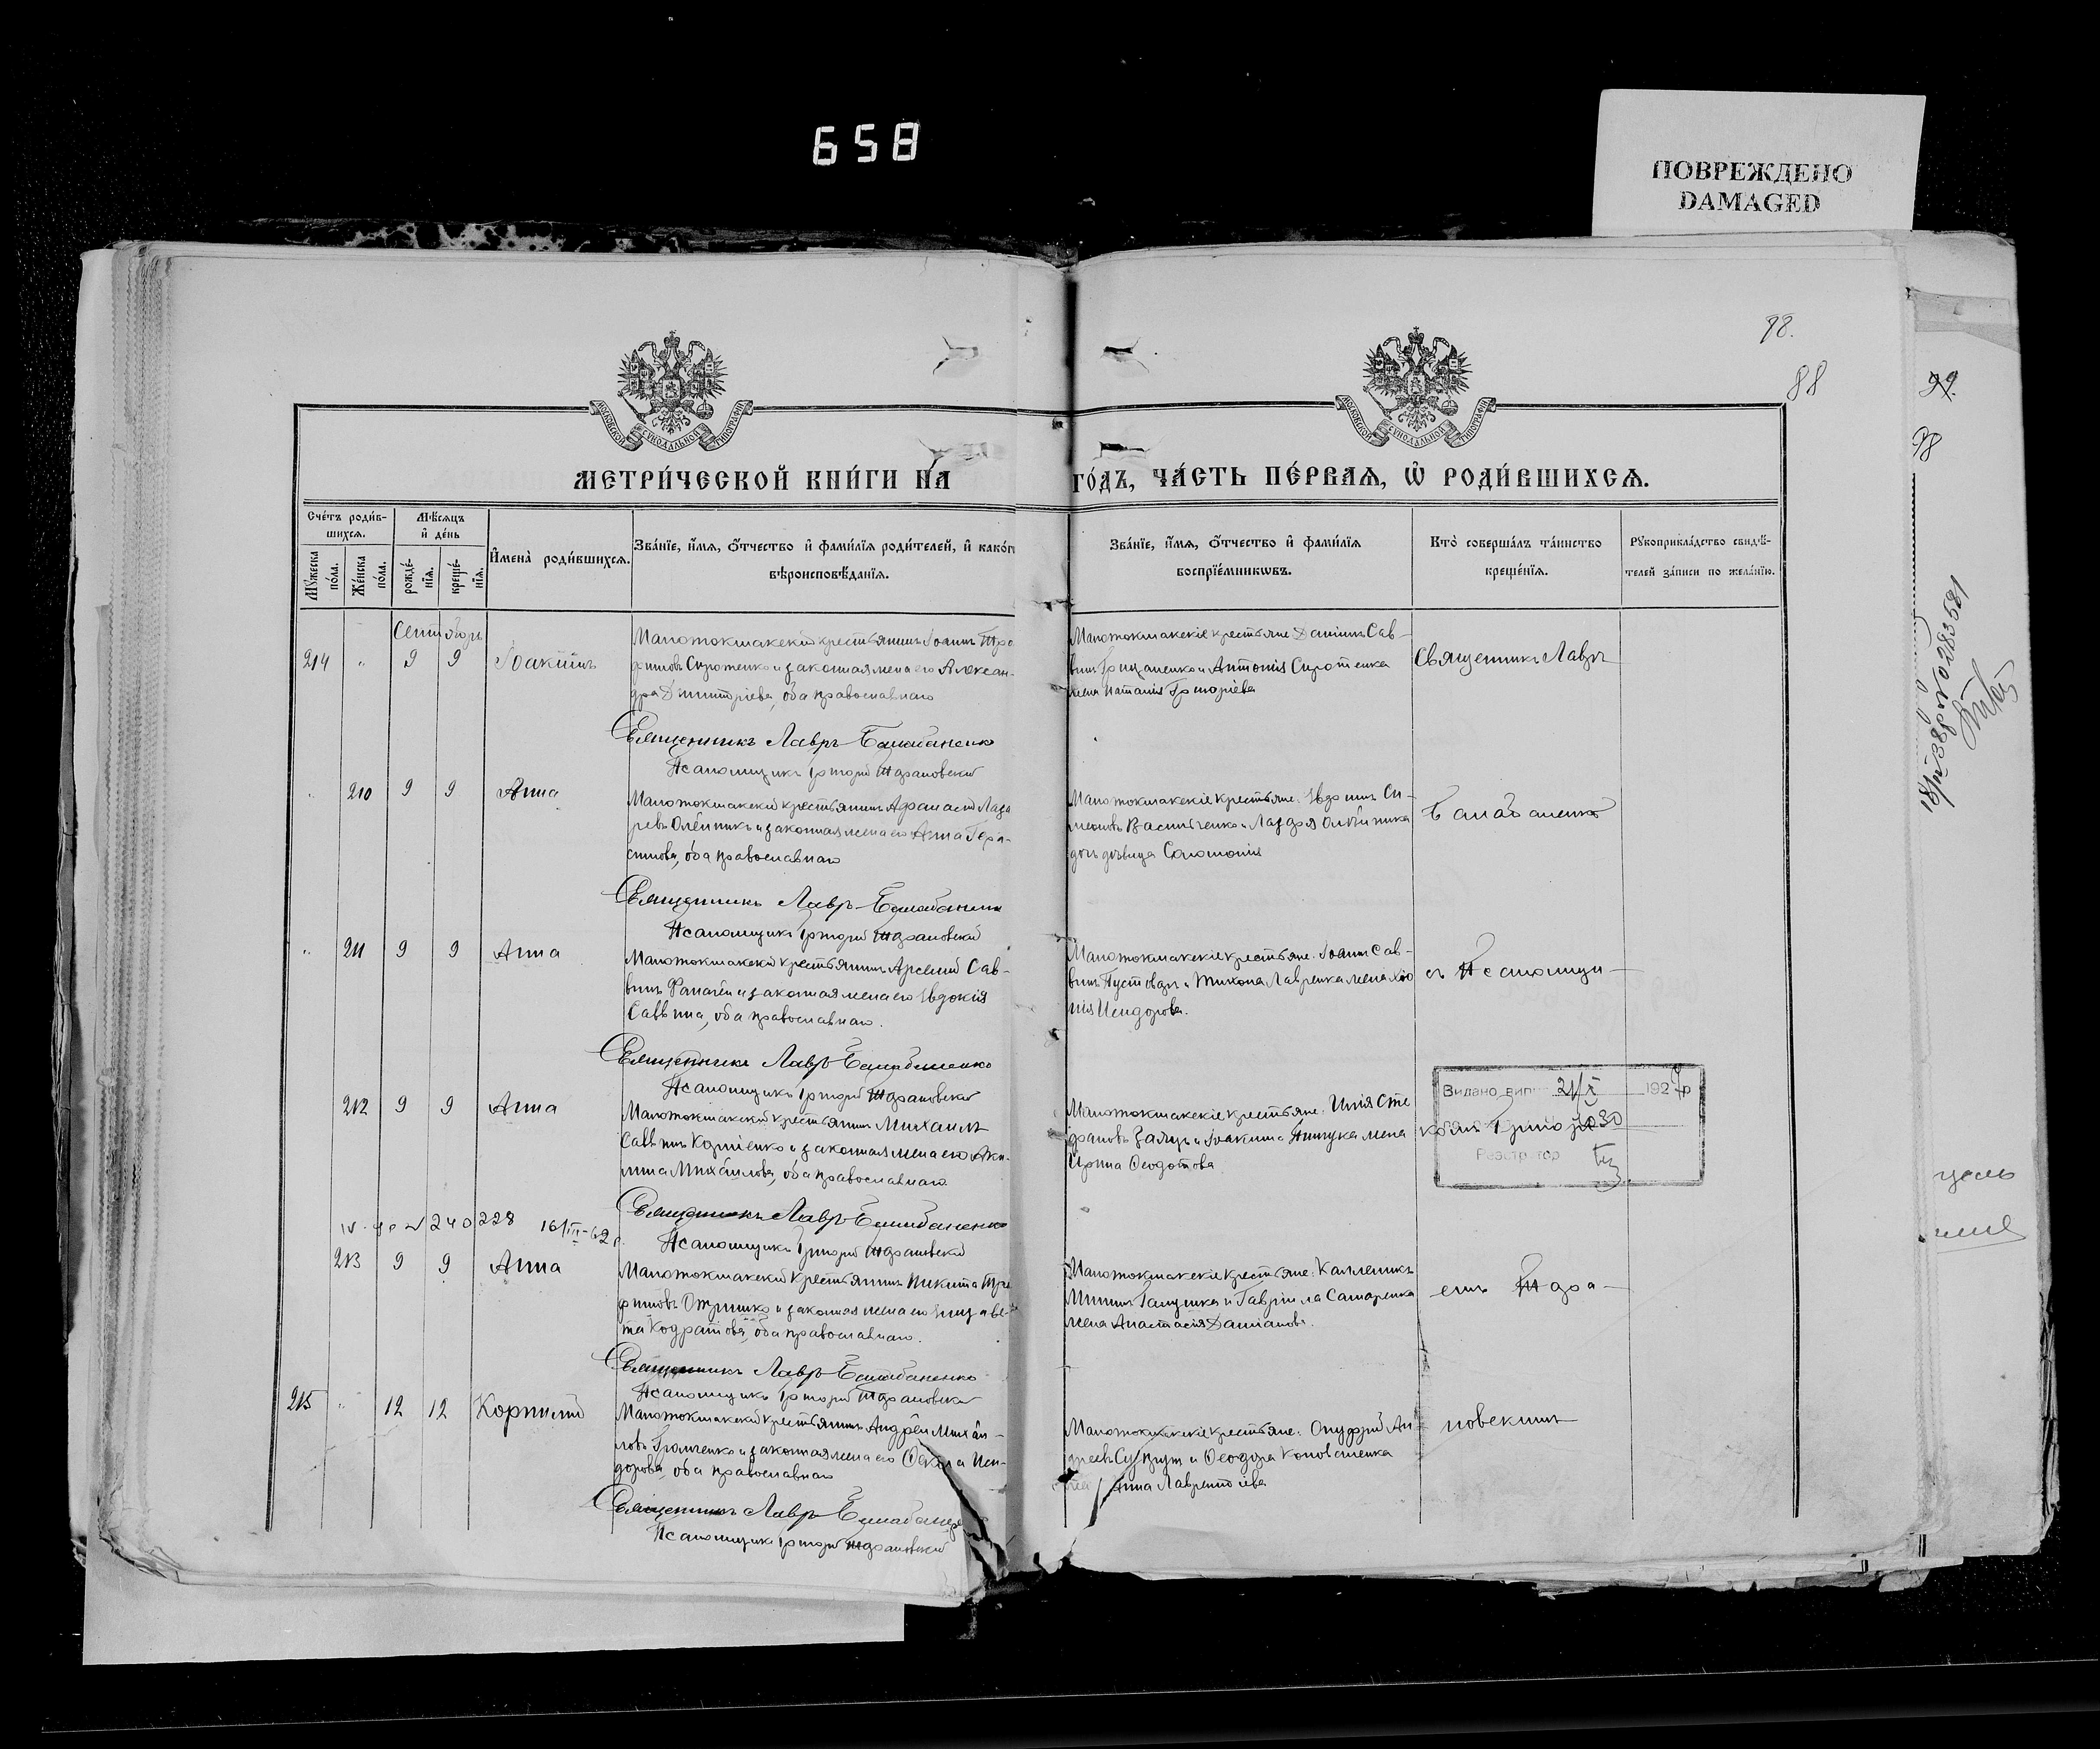 658
ПОВРЕЖДЕНО
DAMAGED
98.
88
99.
98
МОСКОВСКОЙ СѴНОДАЛЬНОЙ ТИПОГРАФІИ
МОСКОВСКОЙ СѴНОДАЛЬНОЙ ТИПОГРАФІИ
МЕТРИ́ЧЕСКОЙ КНИ́ГИ НА
ГО́ДЪ, ЧА́СТЬ ПЕ́РВАѦ, Ѡ҆ РОДИ́ВШИХСѦ.
Сче́тъ роди́в-
шихсѧ.
Мѣ́сѧцъ
и҆ де́нь
Мꙋ́жеска
по́ла.
Же́нска
по́ла.
рожде́-
нїѧ.
креще́-
нїѧ.
И҆мена̀ роди́вшихсѧ.
Зва́нїе, и҆́мѧ, ѻ҆́тчество и҆ фами́лїѧ роди́телей, и҆ како́г
вѣроисповѣ́данїѧ.
Зва́нїе, и҆́мѧ, ѻ҆́тчество и҆ фами́лїѧ
воспрїе́мникѡвъ.
Кто̀ соверша́лъ та́инство
креще́нїѧ.
Рꙋкоприкла́дство свидѣ́-
телей за́писи по жела́нїю.
Сентябрь
214 " 9 9 Іоакимъ
Малотокмакскій крестьянинъ Іоаннъ Тро
фимовъ Сиротенко и законная жена его Алексан-
дра Димитріева, оба православнаго
Священникъ Лавръ Балабаненко
Псаломщикъ Григорій Тдрановскій
Малотокмакскіе крестьяне Даніилъ Сав-
винъ Грицаненко и Антонія Сиротенка
жена Наталія Григоріева
Священникъ Лавръ
" 210 9 9 Анна
Малотокмакскій крестьянинъ Афанасій Лаза
ревъ Олейникъ и законная жена его Анна Гера-
симова, оба православнаго
Священникъ Лавръ Балабаненко
Псаломщикъ Григорій Тдрановскій
Малотокмакскіе крестьяне: Евдокимъ Си-
меоновъ Василченко и Лазаря Олейника
дочь девица Соломонія
Балабаненко
" 211 9 9 Анна
Малотокмакскій крестьянинъ Арсеній Сав-
винъ и законная жена его Евдокія
Саввина, оба православнаго.
Священникъ Лавръ Балабаненко
Псаломщикъ Григорій Тдрановскій
Малотокмакскіе крестьяне: Іоаннъ Сав-
винъ Пустоваръ и Тихона Лавренка жена
нія Исидорова.
съ Псаломщи-
212 9 9 Анна
Малотокмакскій крестьянинъ Михаилъ
Саввинъ Корніенко и законная жена его Аки-
лина Михаилова, оба православнаго
Священникъ Лавръ Балабаненко
Псаломщикъ Григорій Тдрановскій
Малотокмакскіе крестьяне: Илія Сте
фановъ Заяцъ и Іоакима жена
Ирина Ѳеодотова
комъ Григорі
Видано вип 21/X 1927р
030
Реэстратор
240228 16/III-62
213 9 9 Анна
Малотокмакскій крестьянинъ Никита Тро
фимовъ и законная жена его Елизаве-
та Кодратова, оба православнаго.
Священникъ Лавръ Балабаненко
Псаломщикъ Григорій Тдрановскій
Малотокмакскіе крестьяне: Каллиникъ
Мининъ Галушка и Гавріила Самаренка
жена Анастасія Даніилова.
емъ Тдра-
215 " 12 12 Корнилій
Малотокмакскій крестьянинъ Андрей Михай-
ловъ Громченко и законная жена его Ѳекла Иси-
дорова, оба православнаго
Священникъ Лавръ Балабаненко
Псаломщикъ Григорій Тдрановскій
Малотокмакскіе крестьяне: Онуфрій Ан
дреевъ и Ѳеодора Коноваленка
жена Анна Лаврентіева
новскимъ